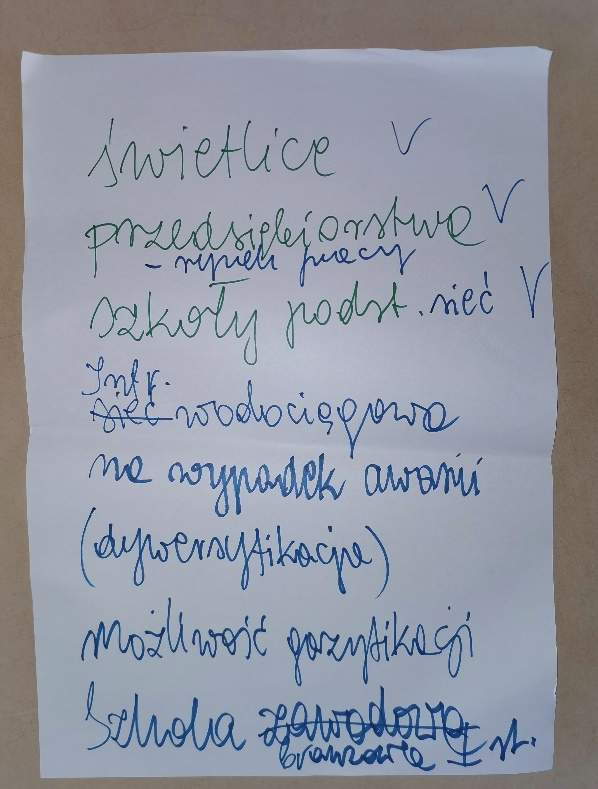 świetlice V
przedsiębiorstwa V
- rynek pracy
szkoły podst. sieć V
Infr.
sieć wodociągowa
na wypadek awarii
(dywersyfikacja)
możliwość gazyfikacji
Szkoła zawodowa
branżowa I st.